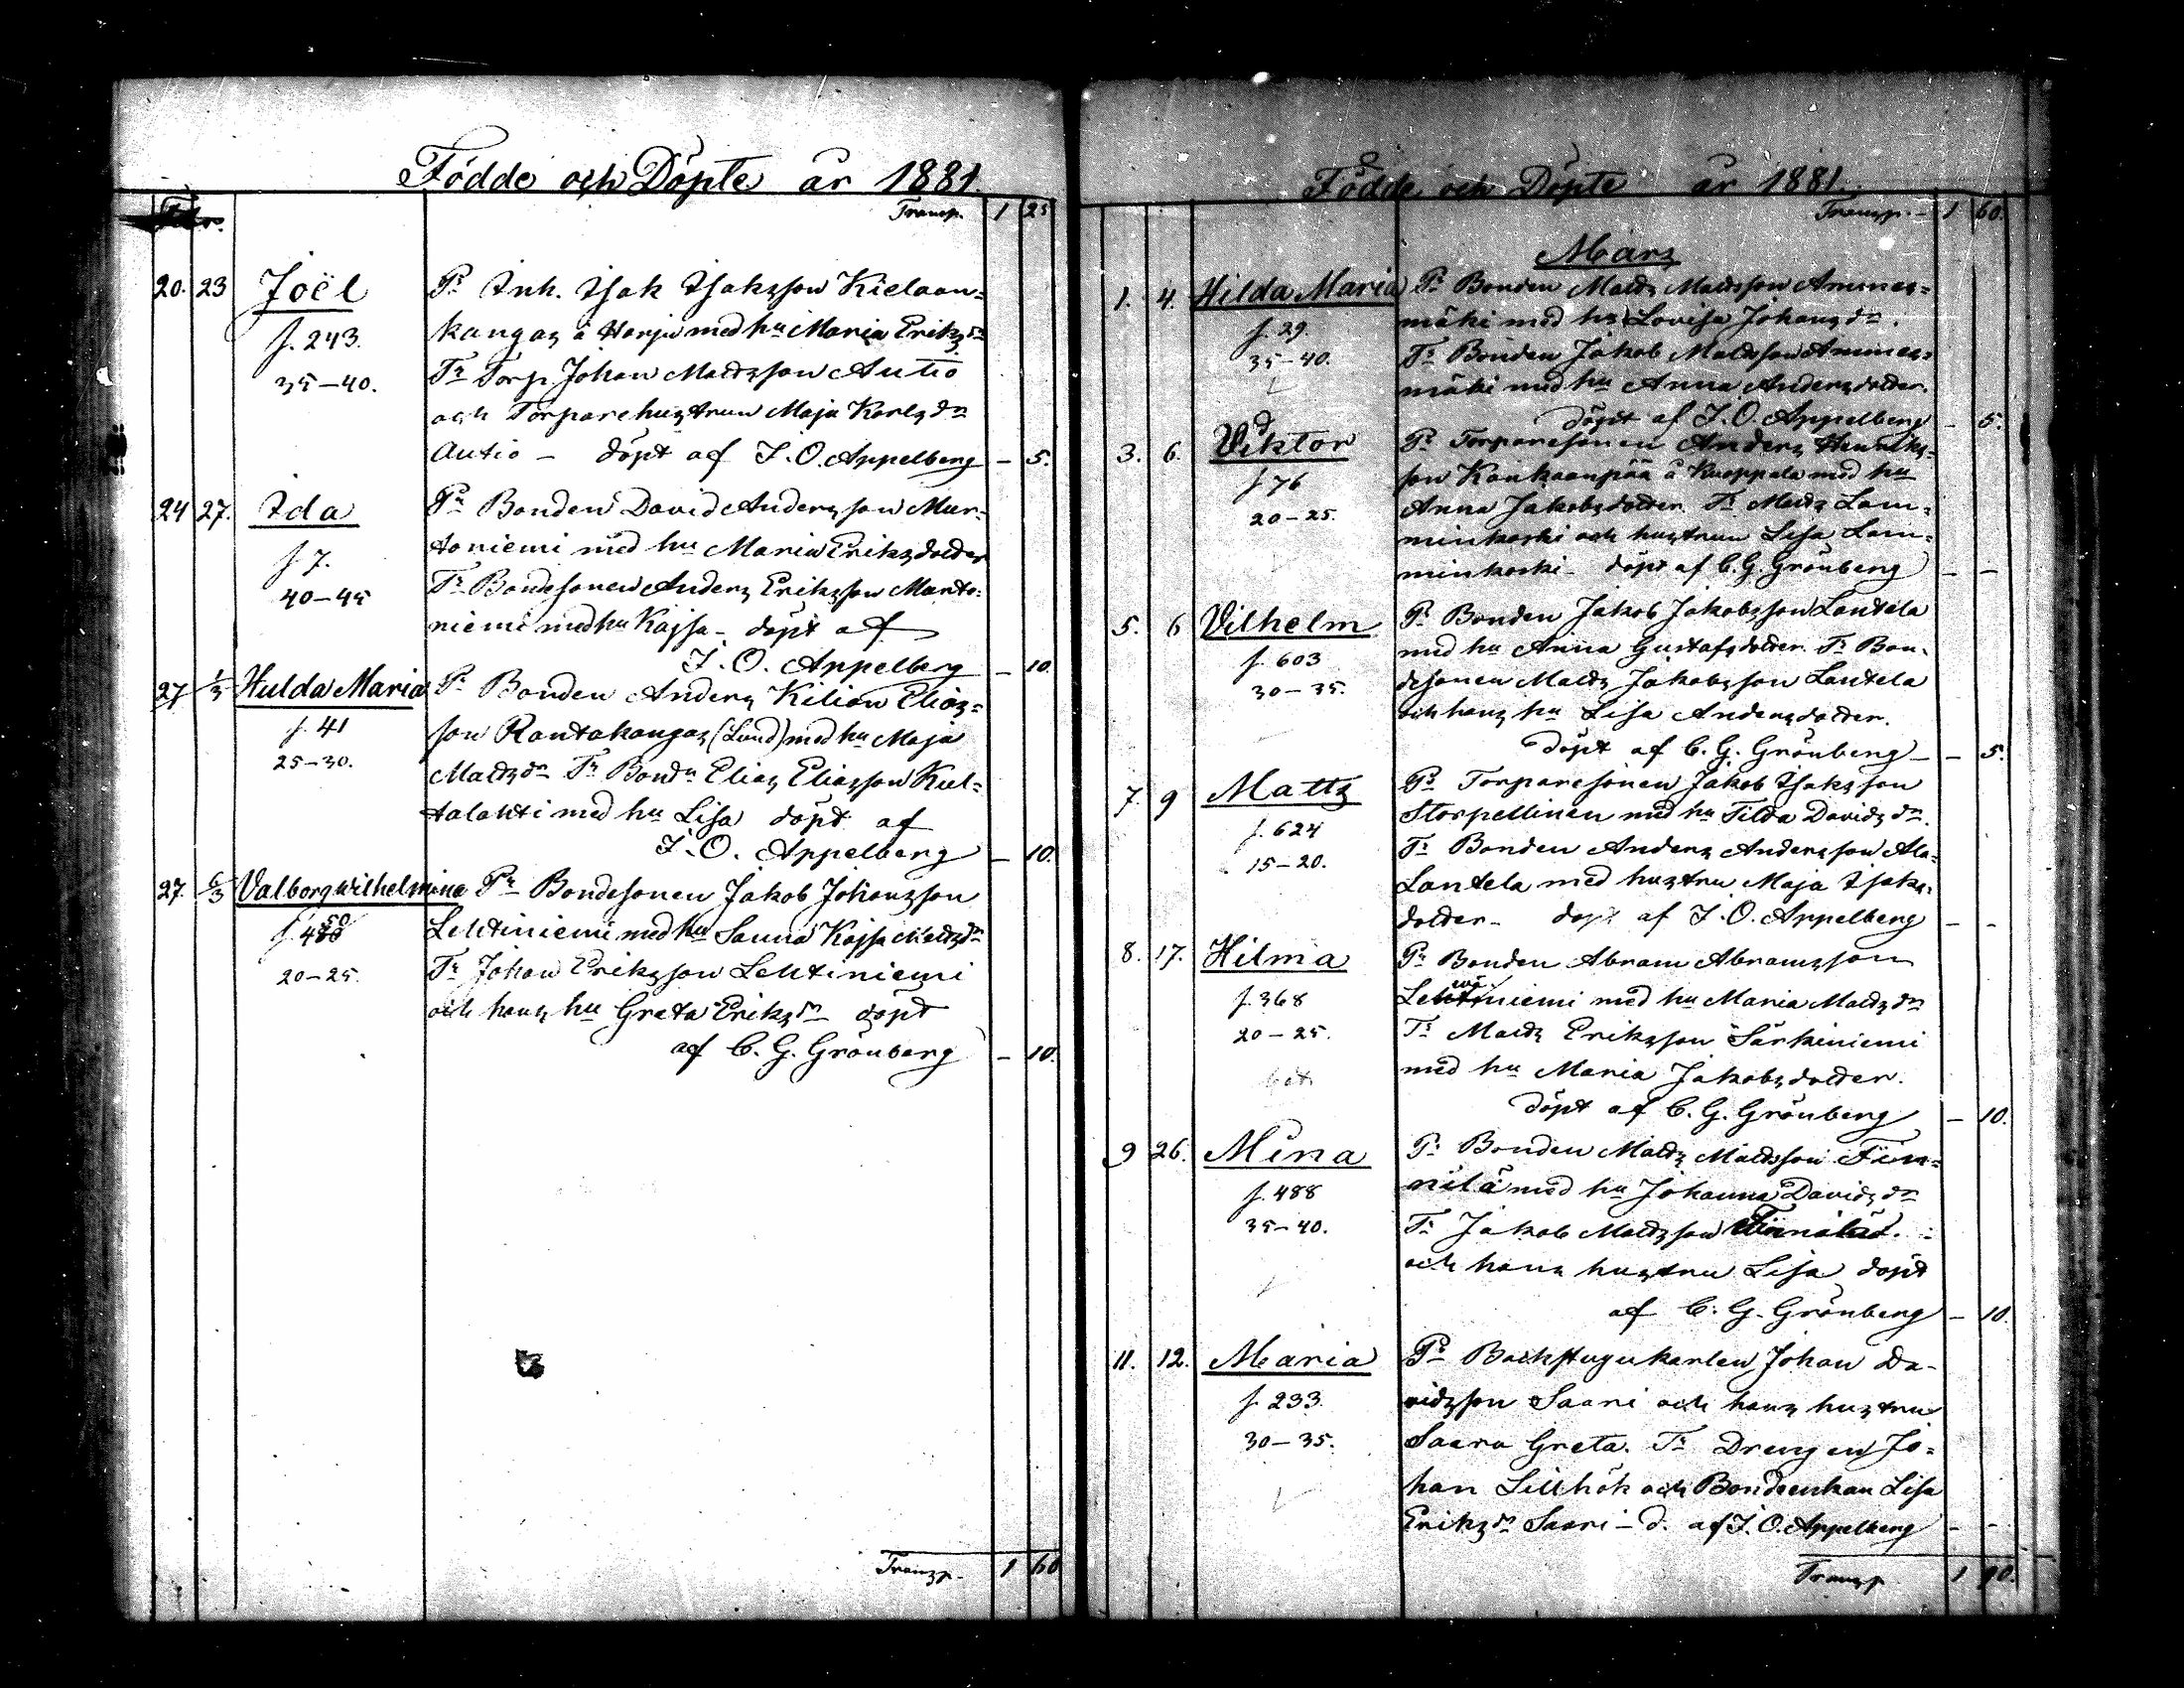 Födde och Döpte år 1881.
Febr. Transp. 1 25
20. 23 Joël Pr Inh. Isak Isaksson Kielaan=
f. 243. kangas å Harju med hu Maria Eriksdr
35-40. Tr Torp. Johan Mattsson Autio
och Torparehustrun Maja Karlsdr
Autio - döpt af J. O. Appelberg - 5.
24 27. Ida Pr Bonden David Andersson Mur=
f 7. toniemi med hu Maria Eriksdotter
40-45 Tr Bondesonen Anders Eriksson Murto=
niemi med hu Kajsa - döpt af
J. O. Appelberg - 10.
27 1/3 Hulda Maria Pr Bonden Anders Kilian Elias=
f. 41 son Rantakangas (Lund) med hu Maja
25-30. Mattsdr Tr Bondn Elias Eliasson Kul=
talahti med hu Lisa döpt af
J. O. Appelberg - 10.
27. 6/3 Valborg Wilhelmina Pr Bondesonen Jakob Johansson
f. 450 Lehtiniemi med hu Sanna Kajsa Mattsdr
20-25. Tr Johan Eriksson Lehtiniemi
och hans hu Greta Eriksdr döpt
af C. G. Grönberg - 10.
Transp. 1 60
Födde och Döpte år 1881.
Transp. - 1 60.
Mars
1. 4. Hilda Maria Pr Bonden Matts Mattsson Ammes=
f. 29. mäki med hu Lovisa Johansdr.
35-40. Tr Bonden Jakob Mattsson Ammes=
mäki med hu Anna Andersdotter.
döpt af J. O. Appelberg - 5.
3. 6. Viktor Pr Torparesonen Anders Henriks=
f 76 son Kankaanpää å Kaoppala med hu
20-25. Anna Jakobsdotter. Tr Matts Lam=
minkoski och hustrun Lisa Lam=
minkoski - döpt af C. G. Grönberg - -
5. 6 Vilhelm Pr Bonden Jakob Jakobsson Lantela
f. 603 med hu Anna Gustafsdotter. Tr Bon=
30-35. desonen Matts Jakobsson Lantela
och hans hu Lisa Andersdotter.
döpt af C. G. Grönberg - - 5.
7. 9 Matts Pr Torparesonen Jakob Isaksson
f. 624 Storpellinen med hu Tilda Davidsdr.
15-20. Tr Bonden Anders Andersson Ala=
Lantela med hustru Maja Isaks=
dotter - döpt af J. O. Appelberg - -
8. 17. Hilma Pr Bonden Abram Abramsson
f. 368 niemi med hu Maria Mattsdr
20-25. Tr Matts Eriksson Särkiniemi
med hu Maria Jakobsdotter.
döpt af C. G. Grönberg - 10.
9 26. Mina Pr Bonden Matts Mattsson Finn=
f. 488 nilä med hu Johanna Davidsdr
35-40. Tr Jakob Mattsson
och hans hustru Lisa döpt
af C. G. Grönberg - 10.
11. 12. Maria Pr Backstugukarlen Johan Da-
f. 233. vidsson Saari och hans hustru
30-35. Saara Greta. Tr Drengen Jo=
han Lillhök och Bondeenkan Lisa
Eriksdr Saari - d. af J. O. Appelberg - -
Transp 1 90.